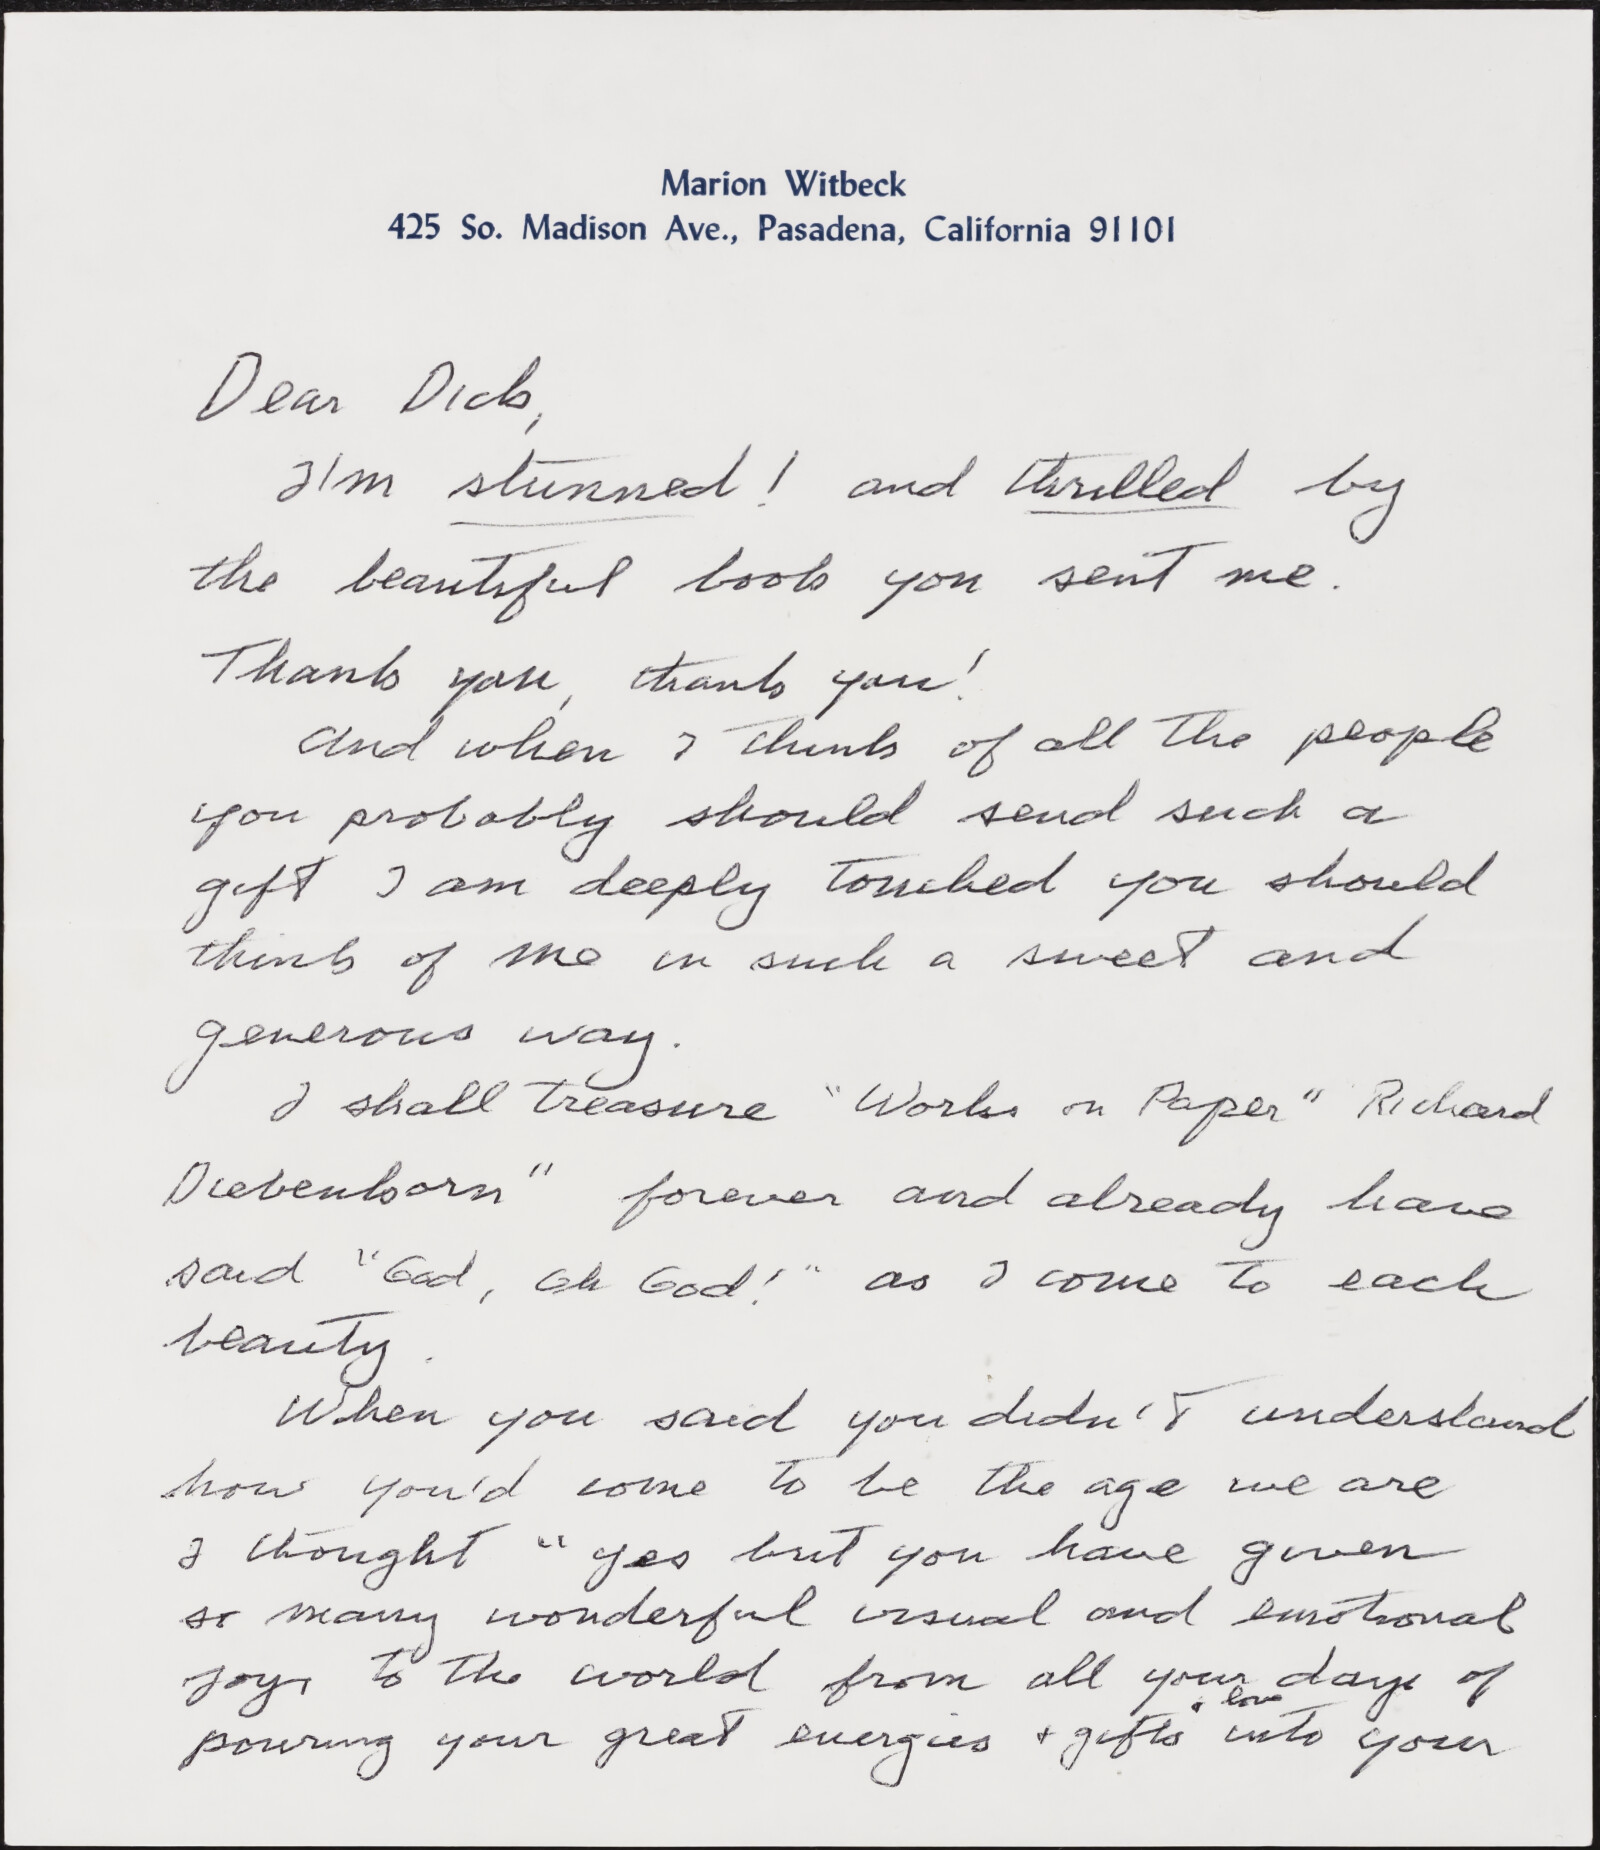 Marion Witbeck
425 So. Madison Ave., Pasadena, California 91101
Dear Dick,
I'm stunned! and thrilled by
the beautiful book you sent me.
Thank you, thank you!
And when I think of all the people
you probably should send such a
gift I am deeply touched you should
think of me in such a sweet and
generous way.
I shall treasure "Works on Paper" Richard
Diebenkorn" forever and already have
said "God, Oh God!" as I come to each
beauty.
When you said you didn't understand
how you'd come to be the age we are
I thought "yes but you have given
so many wonderful visual and emotional
joys to the world from all your days of
+ love
pouring your great energies + gifts into your